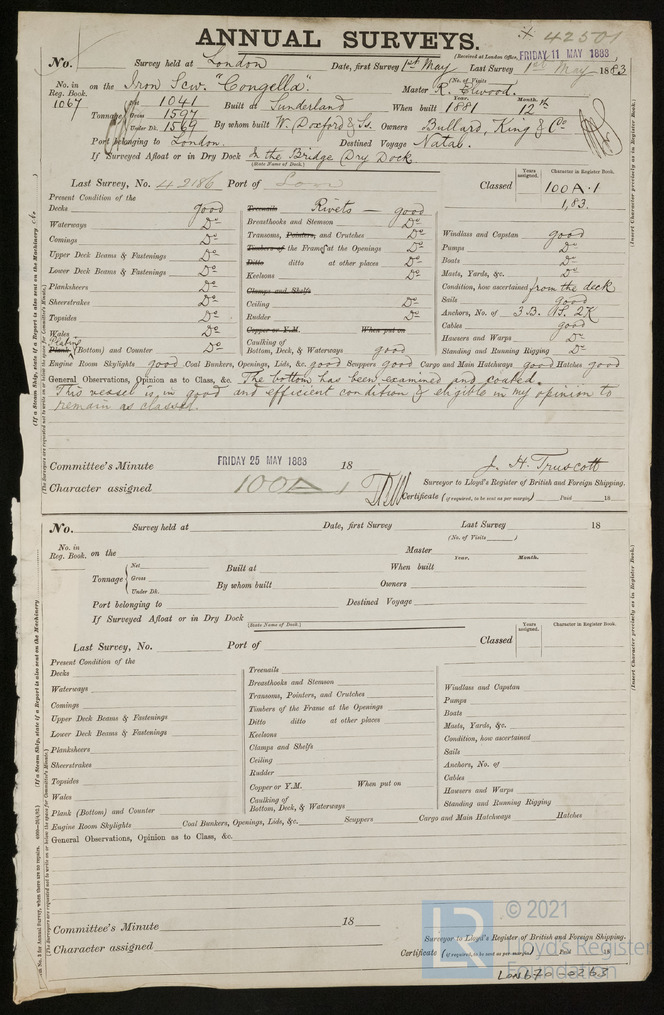 ANNUAL SURVEYS. 42501
(Received at London Office, FRIDAY 11 MAY 1883
No. Survey held at London Date, first Survey 1st May Last Survey 1st May 1883
(No. of Visits
No. in Reg. Book. on the Iron Scw. "Congella". Master R. Elwood.
1067 Net 1041 Built at Sunderland When built Year. 1881 Month. 12th
Tonnage Gross 1597
Under Dk. 1569 By whom built W. Doxford & Ss. Owners Bullard, King & Co
Port belonging to London. Destined Voyage Natal.
If Surveyed Afloat or in Dry Dock In the Bridge Dry Dock
(State Name of Dock.)
Last Survey, No. 42186 Port of Lon Classed Years assigned. Character in Register Book. 100A.1
1,83.
Present Condition of the
Decks good
Waterways Do
Comings Do
Upper Deck Beams & Fastenings Do
Lower Deck Beams & Fastenings Do
Planksheers Do
Sheerstrakes Do
Topsides Do
Wales Do
Plating
Plank (Bottom) and Counter Do
Treenails Rivets — good
Breasthooks and Stemson Do
Transoms, Pointers, and Crutches Do
Timbers of the Frame at the Openings Do
Ditto ditto at other places Do
Keelsons Do
Clamps and Shelfs
Ceiling Do
Rudder Do
Copper or Y.M. When put on
Caulking of
Bottom, Deck, & Waterways good
Windlass and Capstan good
Pumps Do
Boats Do
Masts, Yards, &c. Do
Condition, how ascertained from the deck
Sails good
Anchors, No. of 3 B. 1S. 2K
Cables good
Hawsers and Warps Do
Standing and Running Rigging Do
Engine Room Skylights good Coal Bunkers, Openings, Lids, &c. good Scuppers good Cargo and Main Hatchways good Hatches good
General Observations, Opinion as to Class, &c. The bottom has been examined and coated.
This vessel is in good and efficient condition & eligible in my opinion to
remain as classed.
Committee's Minute FRIDAY 25 MAY 1883 18
J. H. Truscott
Character assigned 100A 1
Surveyor to Lloyd's Register of British and Foreign Shipping.
Certificate (if required, to be sent as per margin) Paid 18
No. Survey held at Date, first Survey Last Survey 18
(No. of Visits )
No. in Reg. Book. on the Master
Net Built at When built Year. Month.
Tonnage Gross
Under Dk. By whom built Owners
Port belonging to Destined Voyage
If Surveyed Afloat or in Dry Dock
(State Name of Dock.)
Last Survey, No. Port of Classed Years assigned. Character in Register Book.
Present Condition of the
Decks
Waterways
Comings
Upper Deck Beams & Fastenings
Lower Deck Beams & Fastenings
Planksheers
Sheerstrakes
Topsides
Wales
Plank (Bottom) and Counter
Treenails
Breasthooks and Stemson
Transoms, Pointers, and Crutches
Timbers of the Frame at the Openings
Ditto ditto at other places
Keelsons
Clamps and Shelfs
Ceiling
Rudder
Copper or Y.M. When put on
Caulking of
Bottom, Deck, & Waterways
Windlass and Capstan
Pumps
Boats
Masts, Yards, &c.
Condition, how ascertained
Sails
Anchors, No. of
Cables
Hawsers and Warps
Standing and Running Rigging
Engine Room Skylights Coal Bunkers, Openings, Lids, &c. Scuppers Cargo and Main Hatchways Hatches
General Observations, Opinion as to Class, &c.
Committee's Minute 18
Character assigned
Surveyor to Lloyd's Register of British and Foreign Shipping.
Certificate (if required, to be sent as per margin) Paid 18
© 2021
Lloyd's Register
Foundation
LON670-0263
(Insert Character precisely as in Register Book.)
(Insert Character precisely as in Register Book.)
(If a Steam Ship, state if a Report is also sent on the Machinery
(If a Steam Ship, state if a Report is also sent on the Machinery